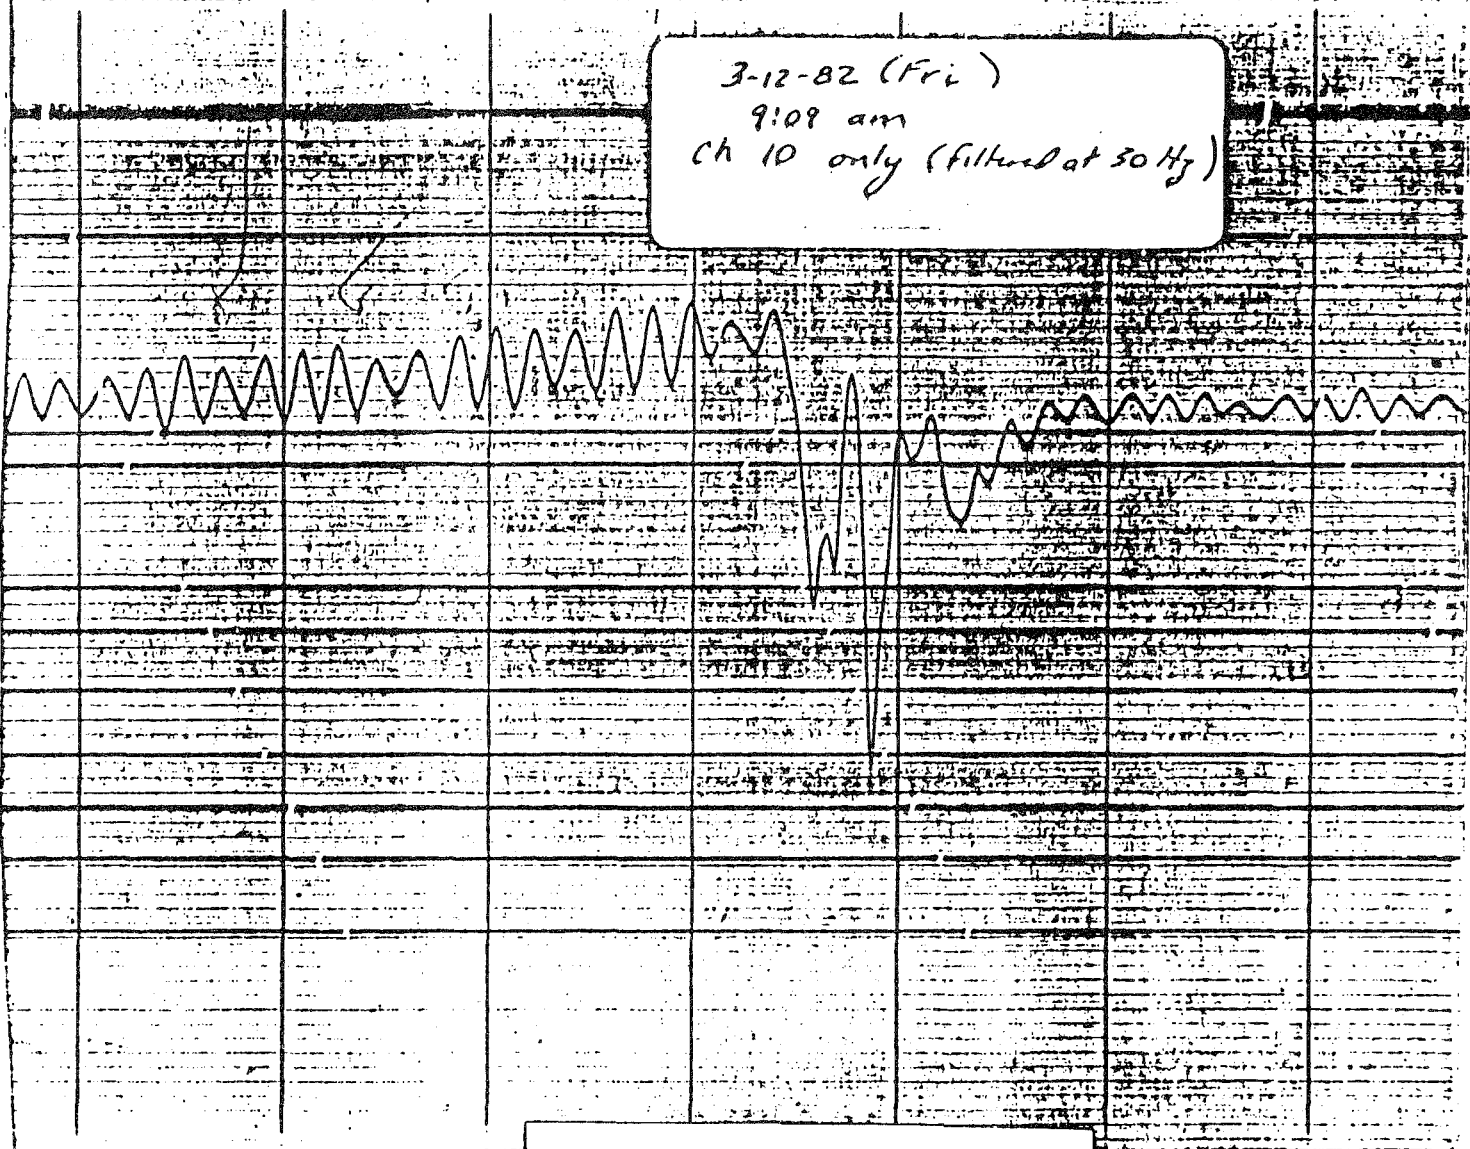 3-12-82 (Fri)
9:09 am
Ch 10 only (filtered at 30 Hz)